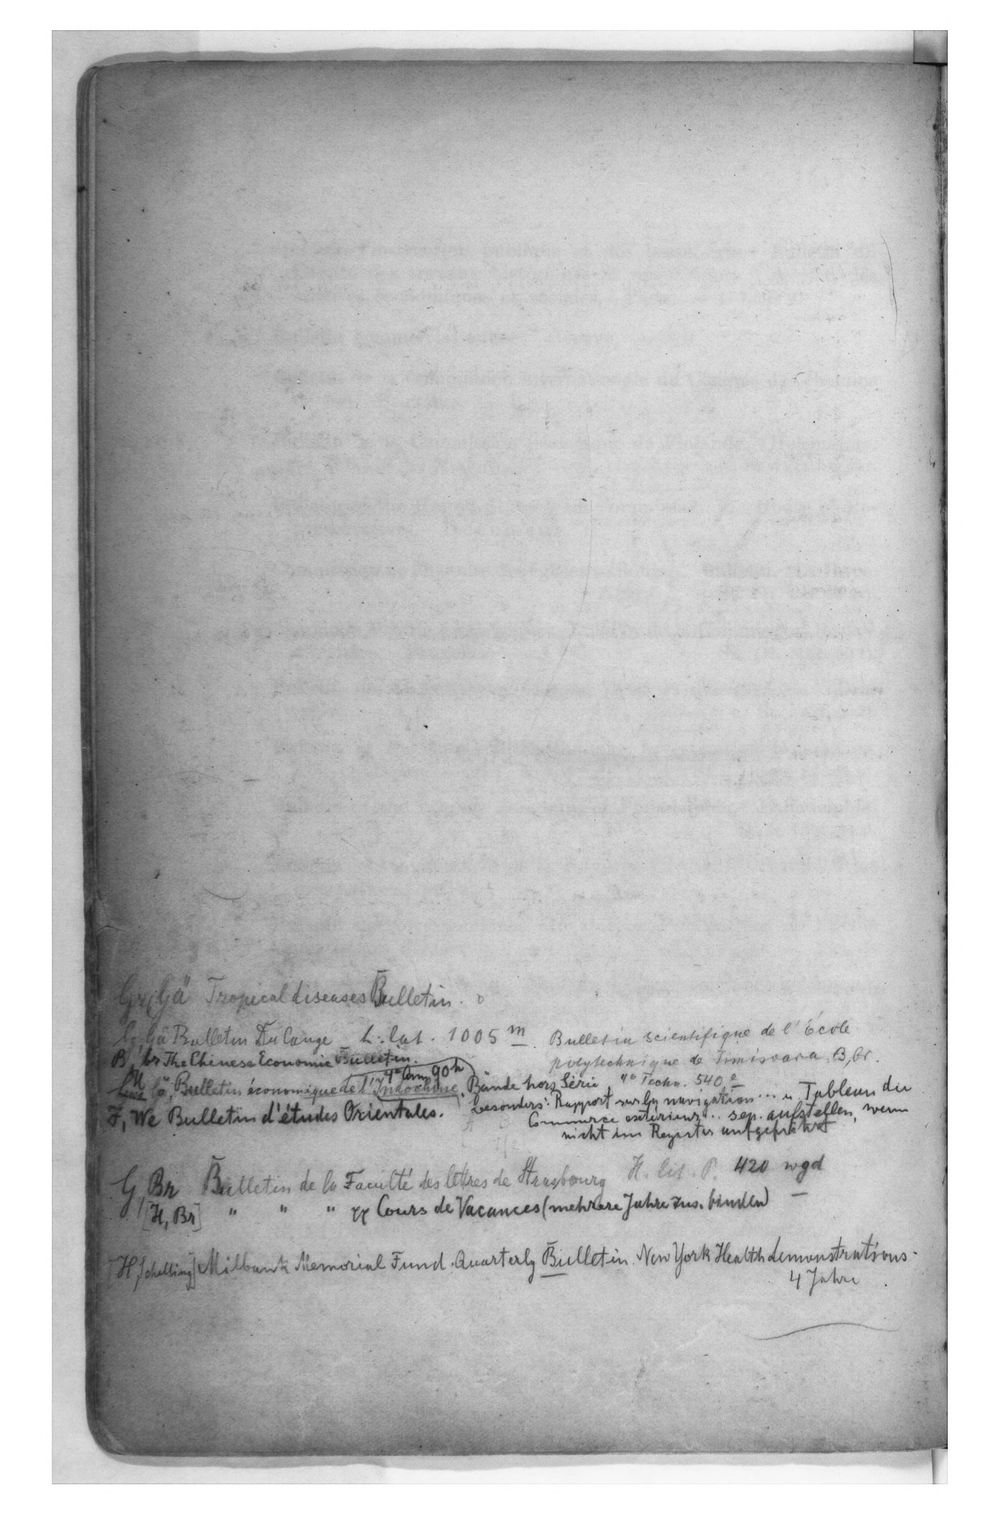 Gr, Gä Tropical diseases Bulletin.
Gä Bulletin Du Cange L. lat. 1005 m
Bulletin scientifique de l'École
polytechnique de Timisoara. B, Br.
4° Techn. 540 e
B, br The Chinese Economic Bulletin.
4° Cam 90 h
Cö, Bulletin économique de l'Indochine. Bände hors Série
besonders: Rapport sur la navigation ... u. Tableau du
Commerce exterieur ... sep. aufstellen, wenn
nicht im Register aufgeführt
F, We Bulletin d'études Orientales.
G, Br Bulletin de la Faculté des lettres de Strasbourg H. lit. P. 420 wgd
[H, Br] " " " Cours de Vacances (mehrere Jahre zus. binden) —
[H, Schelling] Milbank Memorial Fund. Quarterly Bulletin. New York Health demonstrations.
4 Jahre